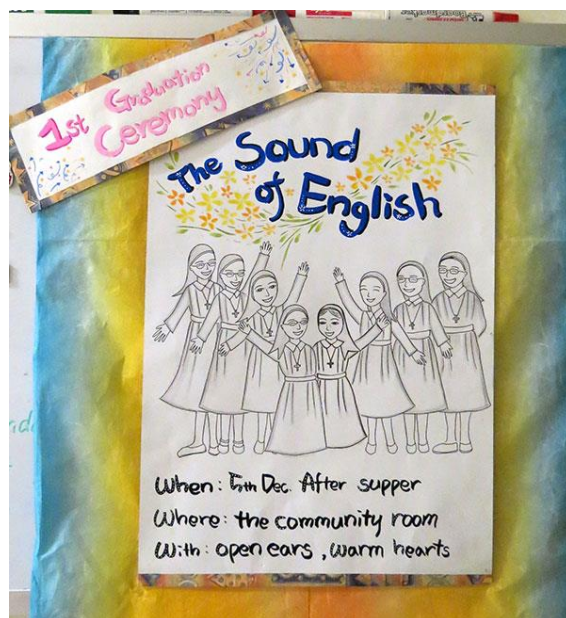 1st Graduation
Ceremony
The Sound
of English
When: 5th Dec. After supper
Where: the community room
With: open ears, warm hearts